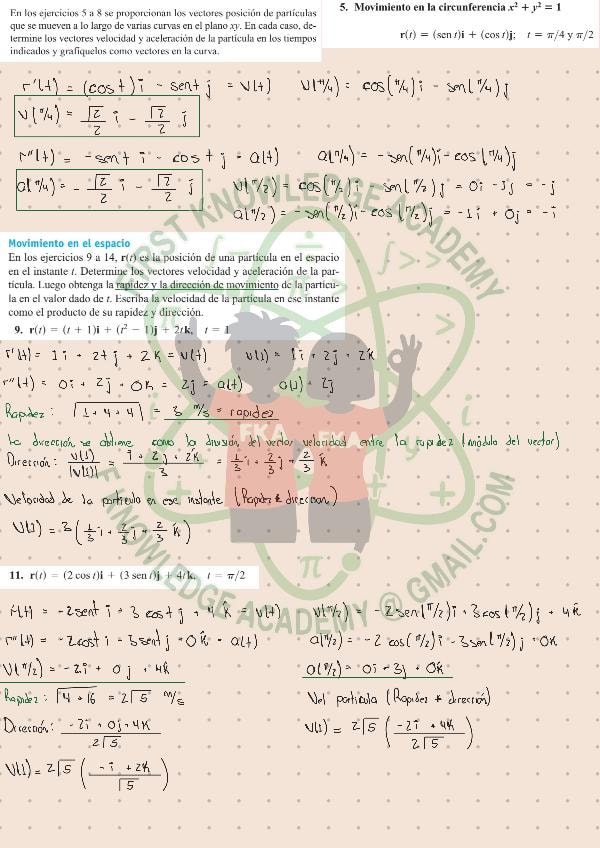 En los ejercicios 5 a 8 se proporcionan los vectores posición de partículas
que se mueven a lo largo de varias curvas en el plano xy. En cada caso, de-
termine los vectores velocidad y aceleración de la partícula en los tiempos
indicados y grafíquelos como vectores en la curva.
5. Movimiento en la circunferencia x² + y² = 1
r(t) = (sen t)i + (cos t)j; t = π/4 y π/2
r'(t) = (cos t) i - sent j = v(t) v(π/4) = cos(π/4) i - sen(π/4) j
v(π/4) = √2/2 i - √2/2 j
r''(t) = -sent i - cos t j = a(t) a(π/4) = -sen(π/4)i - cos(π/4)j
a(π/4) = - √2/2 i - √2/2 j
v(π/2) = cos(π/2) i - sen(π/2) j = 0i - 1j = -j
a(π/2) = -sen(π/2)i - cos(π/2)j = -1i + 0j = -i
Movimiento en el espacio
En los ejercicios 9 a 14, r(t) es la posición de una partícula en el espacio
en el instante t. Determine los vectores velocidad y aceleración de la par-
tícula. Luego obtenga la rapidez y la dirección de movimiento de la partícu-
la en el valor dado de t. Escriba la velocidad de la partícula en ese instante
como el producto de su rapidez y dirección.
9. r(t) = (t + 1)i + (t² − 1)j + 2tk, t = 1
r'(t) = 1i + 2t j + 2k = v(t) v(1) = 1i + 2j + 2k
r''(t) = 0i + 2j + 0k = 2j = a(t) a(1) = 2j
Rapidez: √1+4+4 = 3 m/s = rapidez
La dirección se obtiene como la división del vector velocidad entre la rapidez (módulo del vector)
Dirección: v(1)/|v(1)| = i + 2j + 2k / 3 = 1/3 i + 2/3 j + 2/3 k
Velocidad de la partícula en ese instante (Rapidez * dirección)
v(1) = 3 (1/3 i + 2/3 j + 2/3 k)
11. r(t) = (2 cos t)i + (3 sen t)j + 4tk, t = π/2
r'(t) = -2sent i + 3 cost j + 4 k = v(t) v(π/2) = -2sen(π/2)i + 3cos(π/2)j + 4k
r''(t) = -2cost i - 3sent j + 0k = a(t) a(π/2) = -2 cos(π/2)i - 3sen(π/2)j + 0k
v(π/2) = -2i + 0j + 4k a(π/2) = 0i - 3j + 0k
Rapidez: √4+16 = 2√5 m/s Vel partícula (Rapidez * dirección)
Dirección: -2i + 0j + 4k / 2√5 v(1) = 2√5 (-2i + 4k / 2√5)
v(1) = 2√5 (-i + 2k / √5)
FIRST KNOWLEDGE ACADEMY
FKA FKA
FKNOWLEDGE ACADEMY @ GMAIL.COM